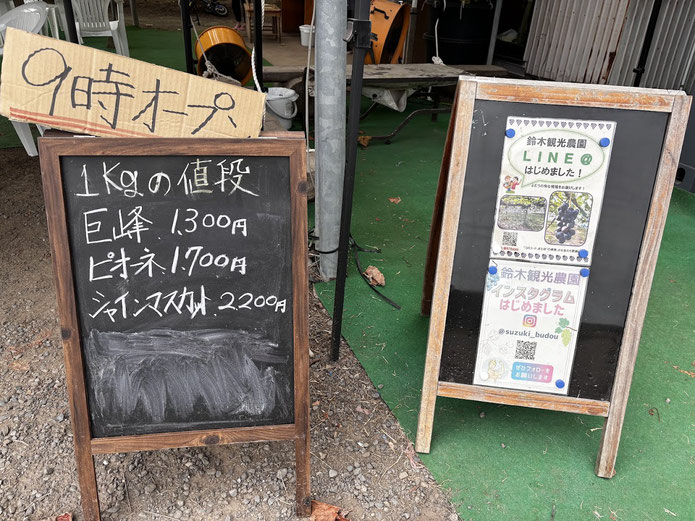 9時オープン
1Kgの値段
巨峰 1.300円
ピオネ 1.700円
シャインマスカット 2.200円
鈴木観光農園
LINE@
はじめました!
鈴木観光農園
インスタグラム
はじめました
@suzuki_budou
ぜひフォローを
お願いします